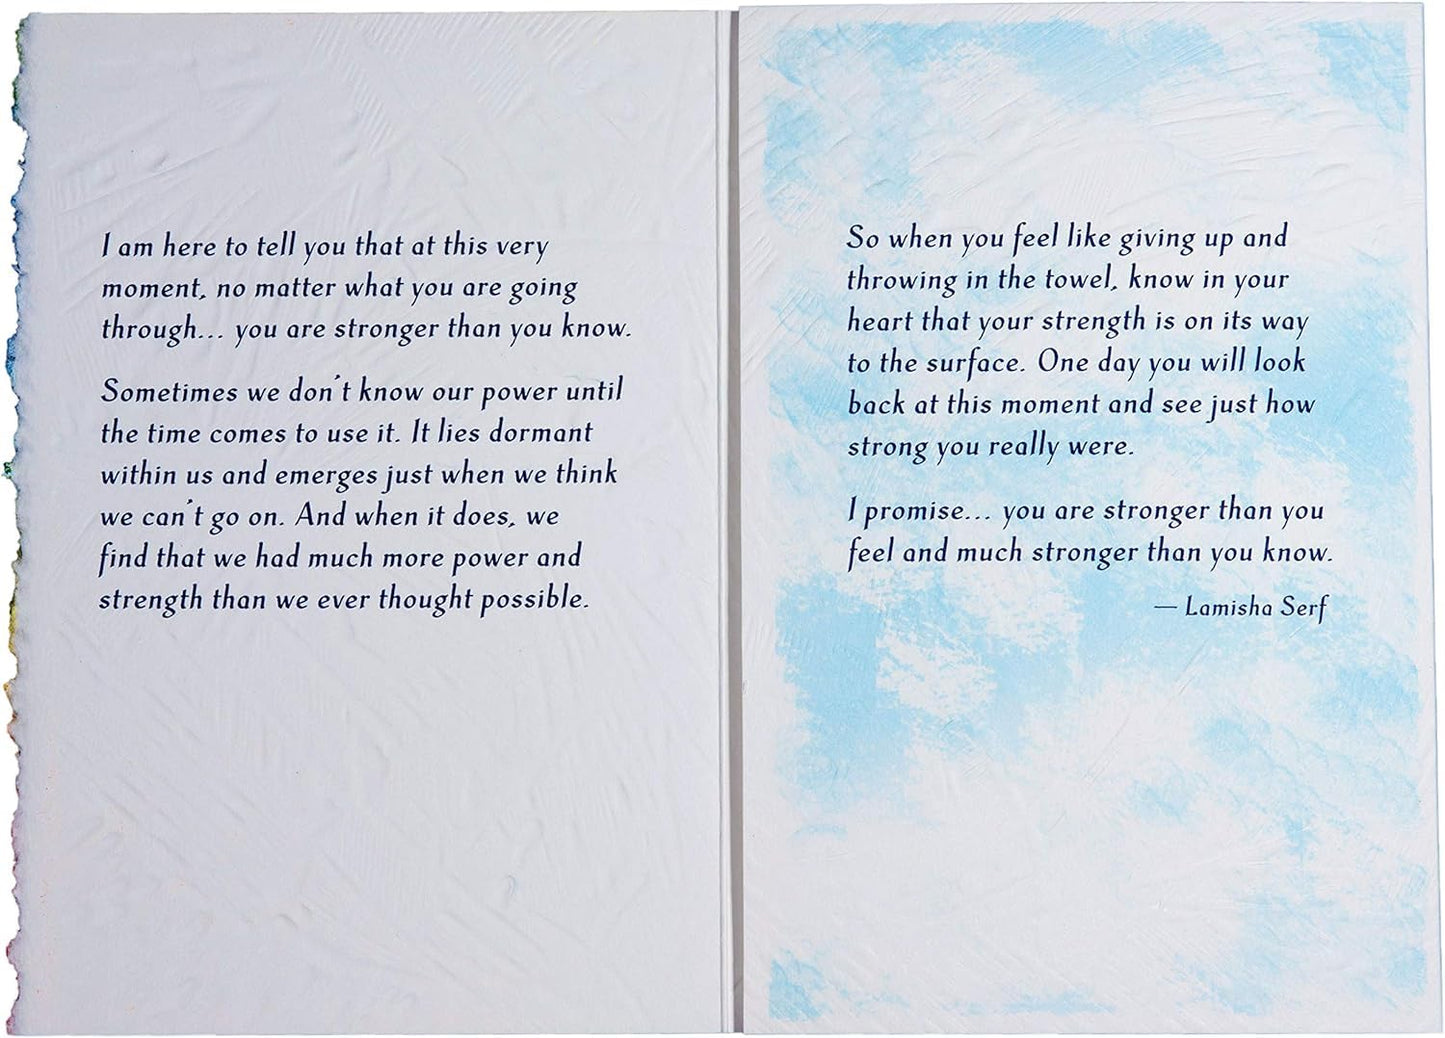 I am here to tell you that at this very
moment, no matter what you are going
through... you are stronger than you know.
Sometimes we don't know our power until
the time comes to use it. It lies dormant
within us and emerges just when we think
we can't go on. And when it does, we
find that we had much more power and
strength than we ever thought possible.
So when you feel like giving up and
throwing in the towel, know in your
heart that your strength is on its way
to the surface. One day you will look
back at this moment and see just how
strong you really were.
I promise... you are stronger than you
feel and much stronger than you know.
— Lamisha Serf